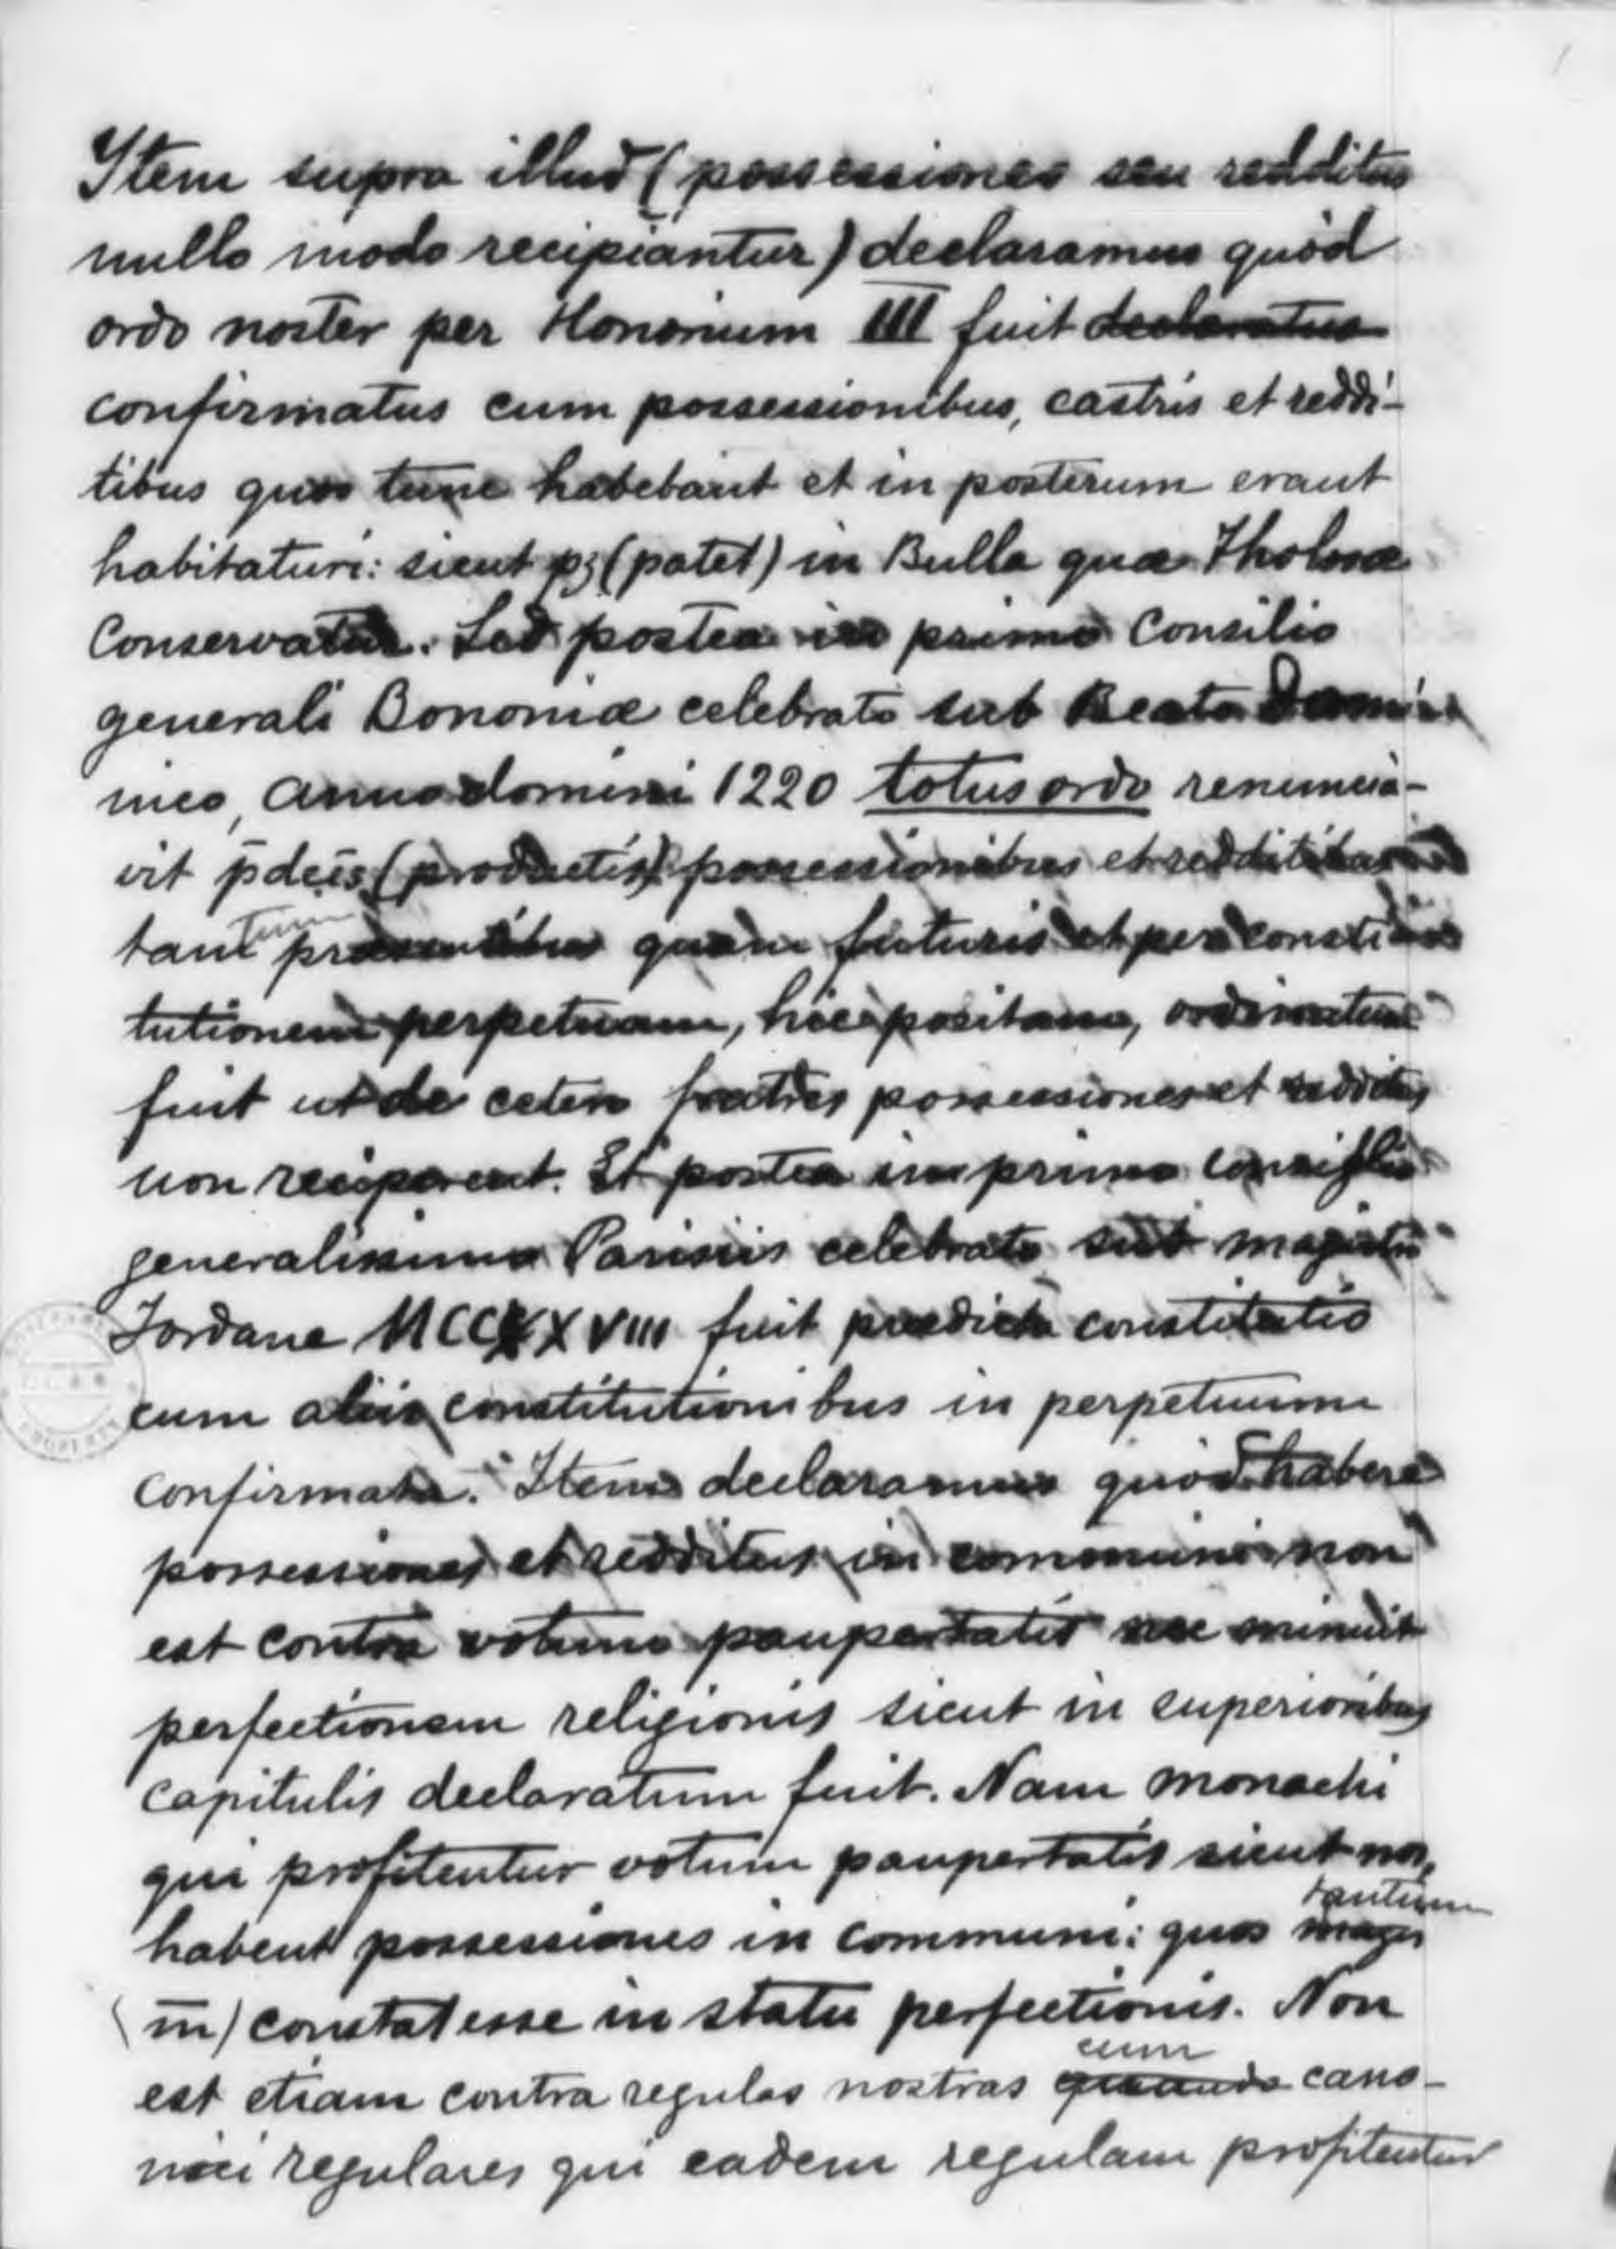 Item supra illud (possessiones seu redditus
nullo modo recipiantur) declaramus quòd
ordo noster per Honorium III fuit declaratus
confirmatus cum possessionibus, castris et reddi-
tibus quos tunc habebant et in posterum erant
habitaturi: sicut pz (patet) in Bulla quæ Tholosæ
Conservatur. Sed postea in primo Consilio
generali Bononiæ celebrato sub Beato Domi-
nico, anno domini 1220 totus ordo renuncia-
vit p̄dcīs (productis) possessionibus et redditibus
tam præsentibus quam futuris et per consti-
tutionem perpetuam, hic positam, ordinatum
fuit ut de cetero fratres possessiones et redditus
non reciperent. Et postea in primo consilio
generalissimo Parisiis celebrato sub magistro
Jordane MCCXXVIII fuit prædicta constitutio
cum aliis constitutionibus in perpetuum
confirmata. Item declaramus quòd habere
possessiones et redditus in communi non
est contra votum paupertatis nec minuit
perfectionem religionis sicut in superioribus
capitulis declaratum fuit. Nam monachi
qui profitentur votum paupertatis sicut nos,
tantum
habent possessiones in communi: quos magis
(m̄) constat esse in statu perfectionis. Non
cum
est etiam contra regulas nostras quando cano-
nici regulares qui eadem regulam profitentur